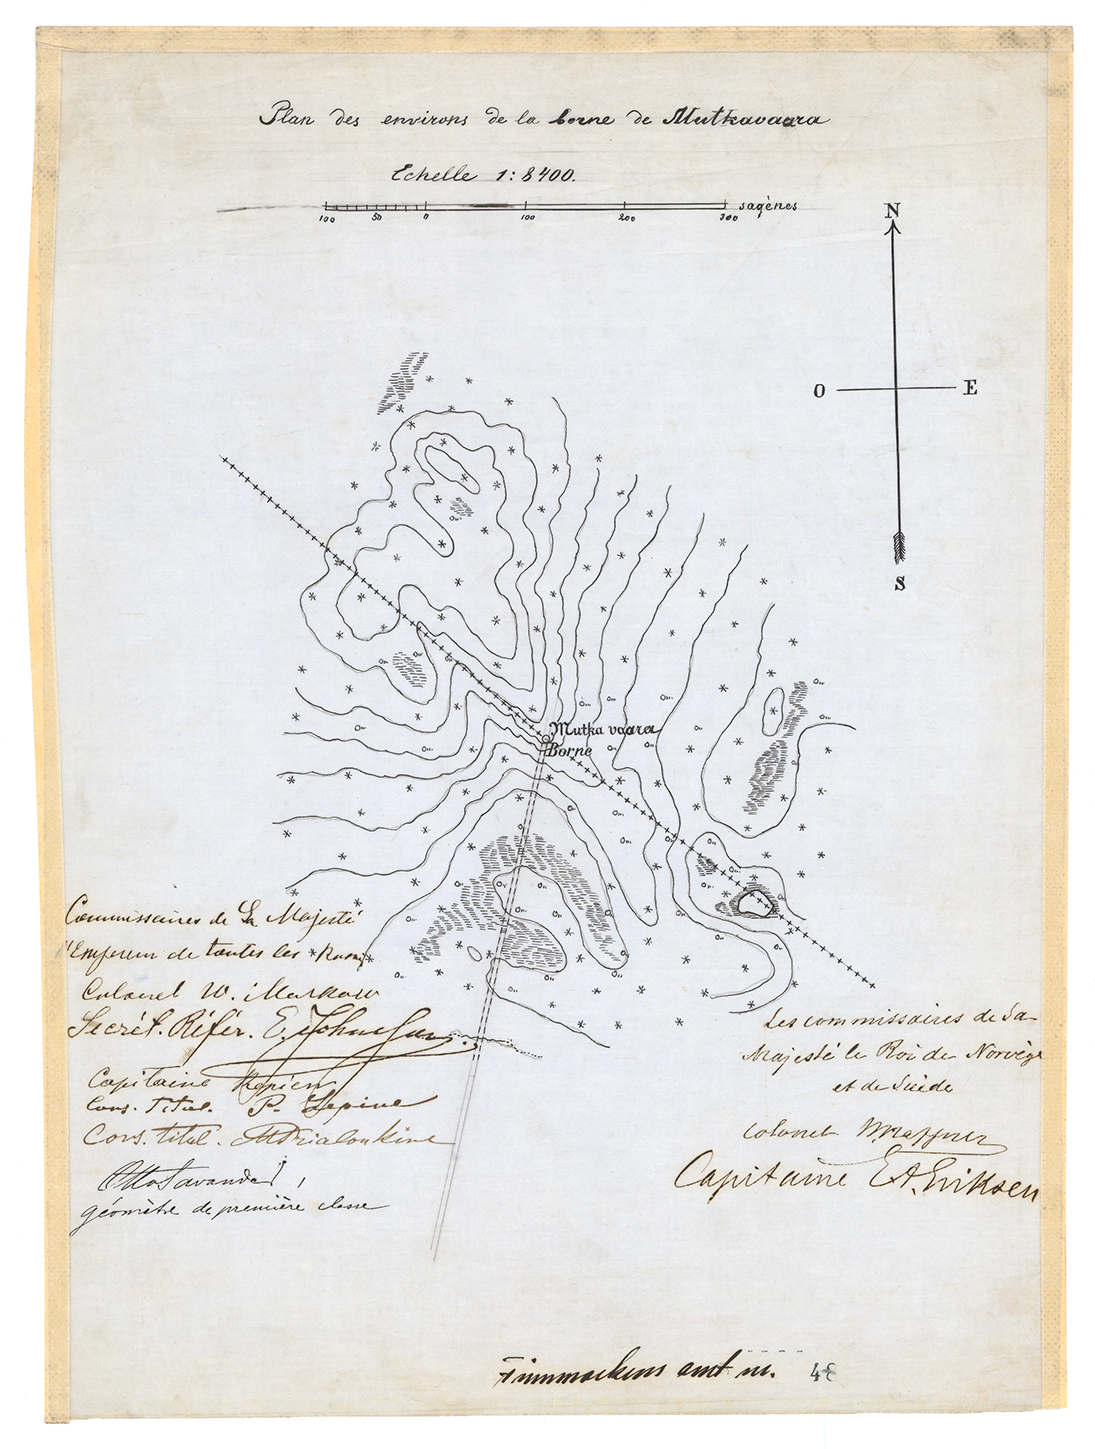 Plan des environs de la borne de Mutkavaara
Echelle 1:8400.
100 50 0 100 200 300 sagènes
N
O E
S
Mutka vaara
Borne
Commissaires de Sa Majesté
l'Empereur de toutes les
Colonel W. Markow
Secrét. Référ. E.
Capitaine
Cons. Titul. P. Lepine
Cons. titul.
Otto Savander,
géomètre de première classe
Les commissaires de Sa
Majesté le Roi de Norvège
et de Suède
Colonel
Capitaine E A. Eriksen
Finmarkens amt nr. 48